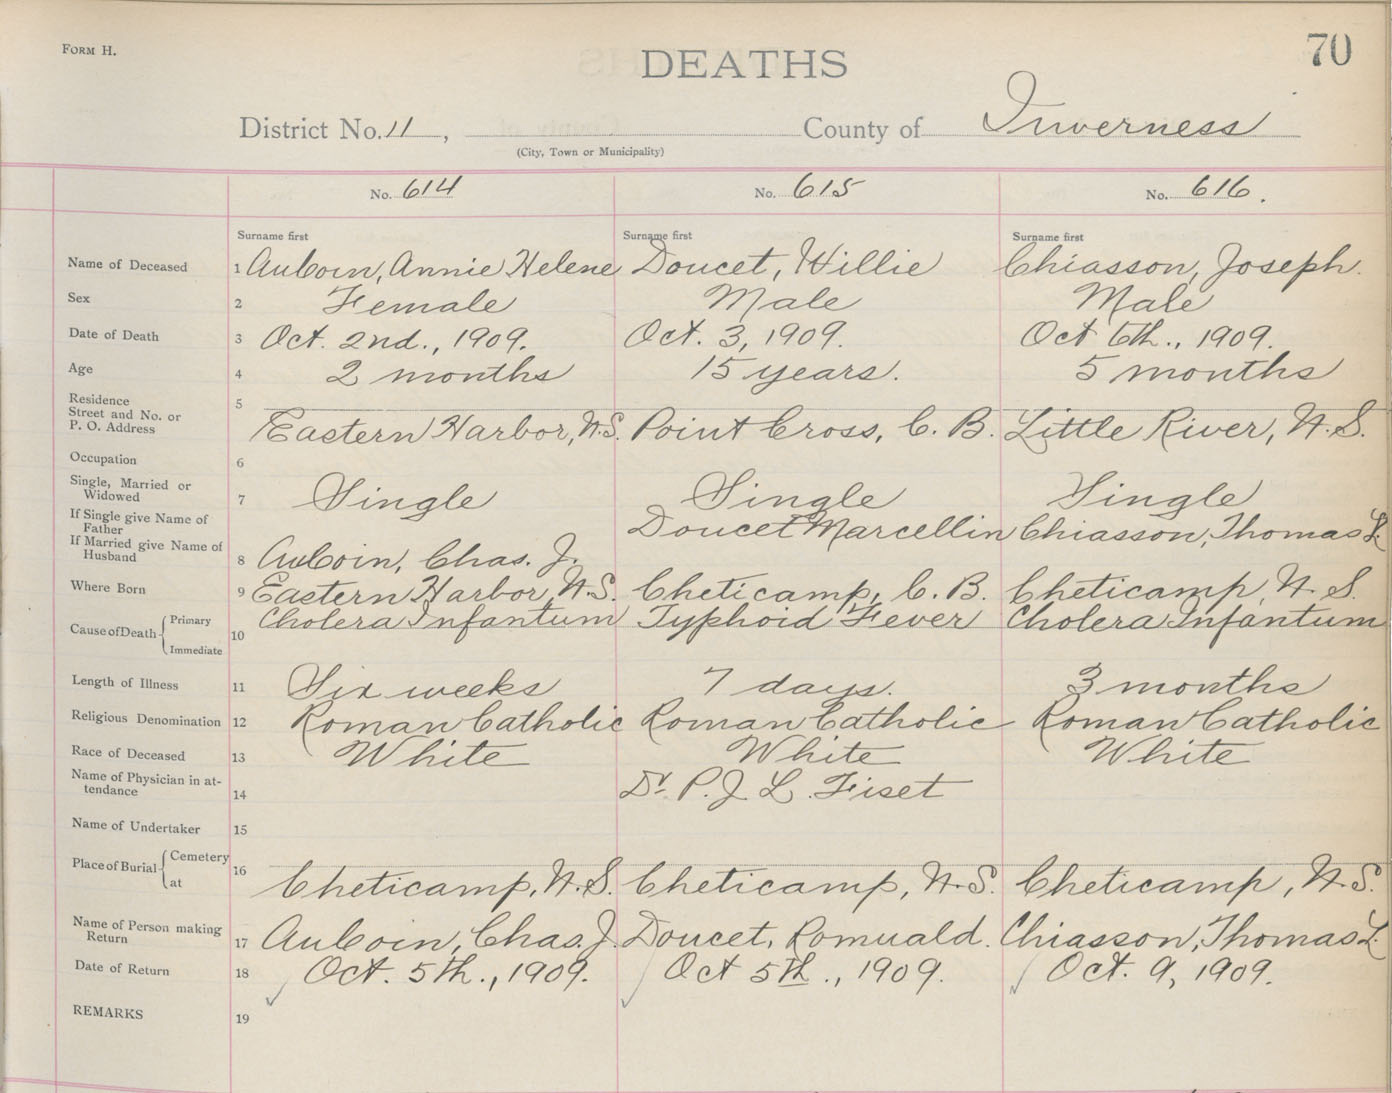 FORM H.
DEATHS
70
District No. 11, County of Inverness
(City, Town or Municipality)
No. 614 No. 615 No. 616.
Surname first Surname first Surname first
Name of Deceased 1 AuCoin, Annie Helene Doucet, Willie Chiasson, Joseph.
Sex 2 Female Male Male
Date of Death 3 Oct. 2nd., 1909. Oct. 3, 1909. Oct 6th., 1909.
Age 4 2 months 15 years. 5 months
Residence
Street and No. or
P. O. Address 5 Eastern Harbor, N.S. Point Cross, C. B. Little River, N. S.
Occupation 6
Single, Married or
Widowed 7 Single Single Single
If Single give Name of
Father Doucet Marcellin Chiasson, Thomas L.
If Married give Name of
Husband 8 AuCoin, Chas. J.
Where Born 9 Eastern Harbor, N.S. Cheticamp, C. B. Cheticamp, N. S.
Cause of Death Primary Cholera Infantum Typhoid Fever Cholera Infantum
10
Immediate
Length of Illness 11 Six weeks 7 days. 3 months
Religious Denomination 12 Roman Catholic Roman Catholic Roman Catholic
Race of Deceased 13 White White White
Name of Physician in at-
tendance 14 Dr. P. J. L. Fiset
Name of Undertaker 15
Place of Burial Cemetery 16
at Cheticamp, N. S. Cheticamp, N. S. Cheticamp, N. S.
Name of Person making
Return 17 AuCoin, Chas. J. Doucet, Romuald. Chiasson, Thomas L.
Date of Return 18 Oct. 5th., 1909. Oct 5th., 1909. Oct. 9, 1909.
REMARKS 19